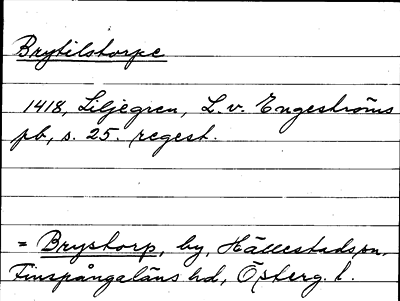 Brytilstorpe
1418, Liljegren, L. v. Engeströms
pb, s. 25. regest.
= Brystorp, by, Hällestads sn.
Finspångaläns hd, Österg. l.